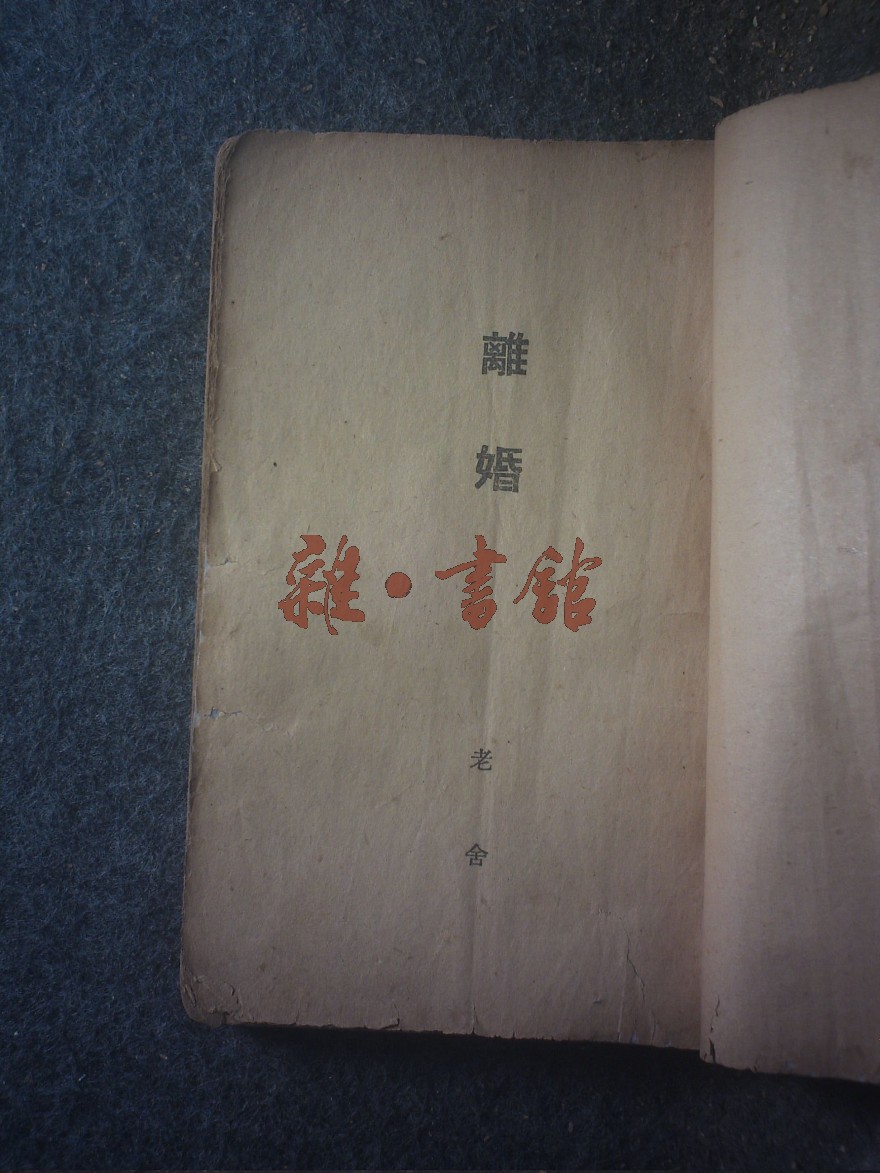 離婚
雜·書館
老舍